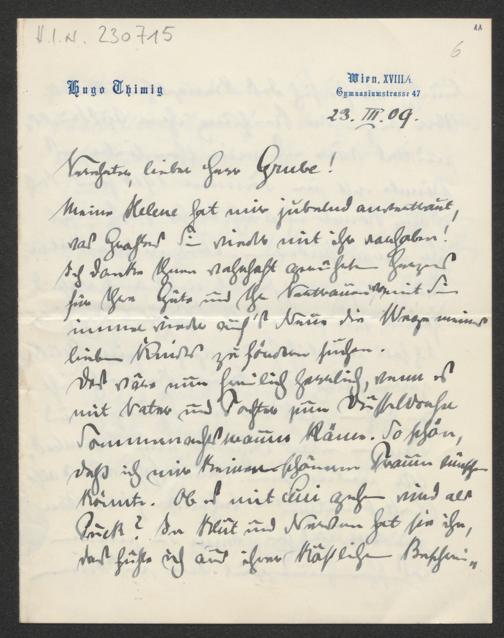 H.I.N. 230715
AA
6
Hugo Thimig
Wien, XVIII/1.
Gymnasiumstrasse 47
23. III. 09.
Verehrter, lieber Herr Grube!
Meine Helene hat mir jubelnd anvertraut,
was Großes Sie wieder mit ihr vorhaben!
Ich danke Ihnen wahrhaft gerührten Herzens
für Ihre Güte und Ihr Vertrauen, mit dem Sie
immer wieder auf's Neue die Wege meines
lieben Kindes zu fördern suchen.
Das wäre nun freilich herrlich, wenn es
mit Vater und Tochter zum Düsseldorfer
Sommernachtstraum käme. So schön,
daß ich mir keinen schöneren Traum
könnte. Ob es mit gehen wird als
Puck? Im Blut und Nerven hat sie ihn,
das fühle ich aus ihrer köstlichen